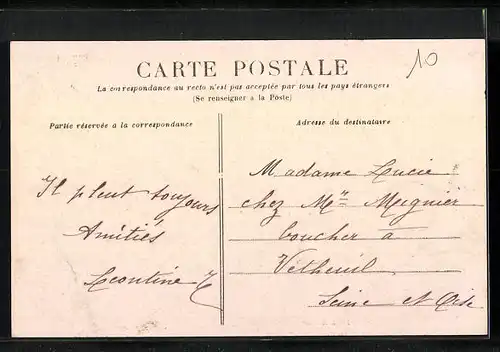 10
CARTE POSTALE
La correspondance au recto n'est pas acceptée par tous les pays étrangers
(Se renseigner à la Poste)
Partie réservée à la correspondance
Adresse du destinataire
Il pleut toujours
Amitiés
Leontine
Madame Lucie
chez Mr Meignier
boucher à
Vetheuil
Seine et Oise